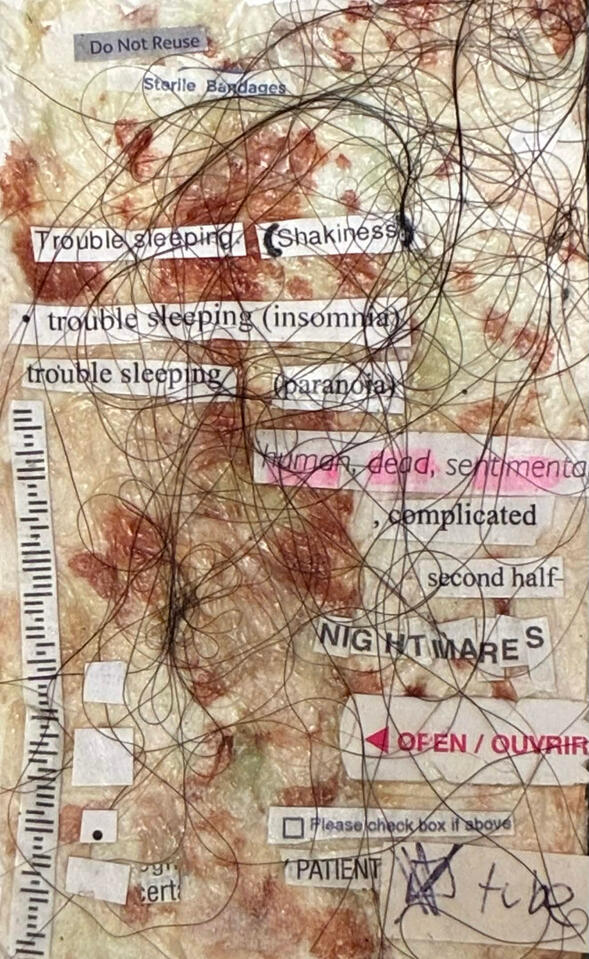 Do Not Reuse
Sterile Bandages
Trouble sleeping. (Shakiness)
• trouble sleeping (insomnia),
trouble sleeping, (paranoia)
human, dead, sentimenta
, complicated
second half-
NIGHTMARES
OPEN / OUVRIR
Please check box if above
PATIENT
cert
tube